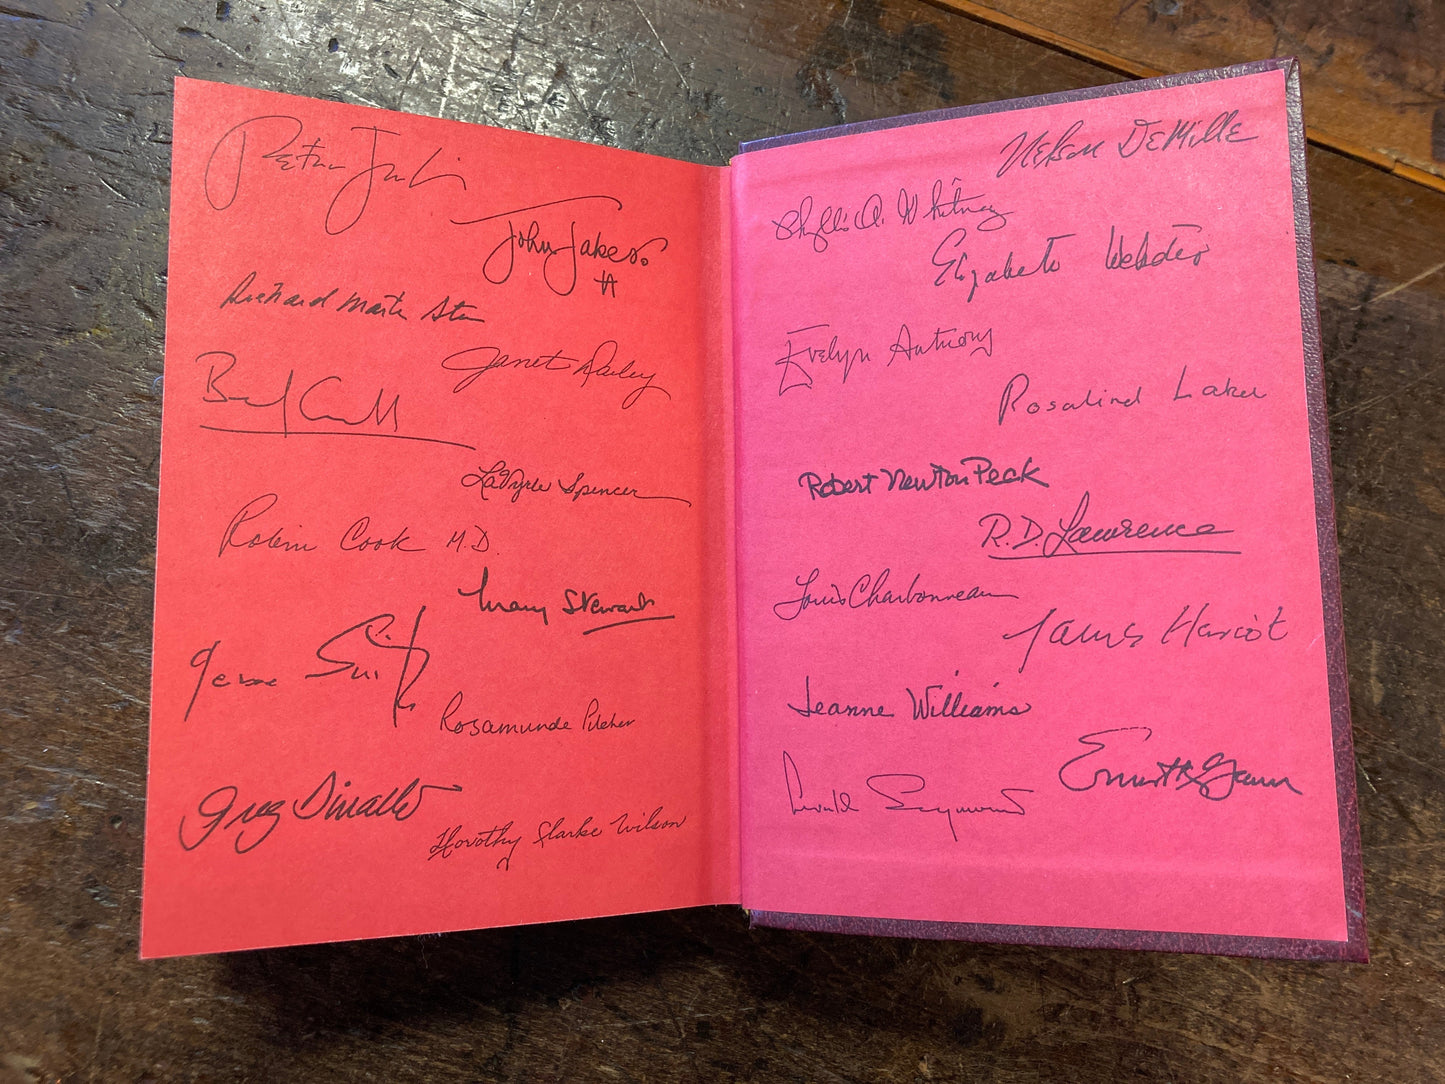 Peter
John Jakes
Richard Martin Stern
Janet Dailey
LaVyrle Spencer
Robin Cook M.D.
Mary Stewart
Rosamunde Pilcher
Greg Dinallo
Dorothy Clarke Wilson
Nelson DeMille
Phyllis A. Whitney
Elizabeth Webster
Evelyn Anthony
Rosalind Laker
Robert Newton Peck
R.D. Lawrence
Louis Charbonneau
James Herriot
Jeanne Williams
Ernest K Gann
Gerald Seymour